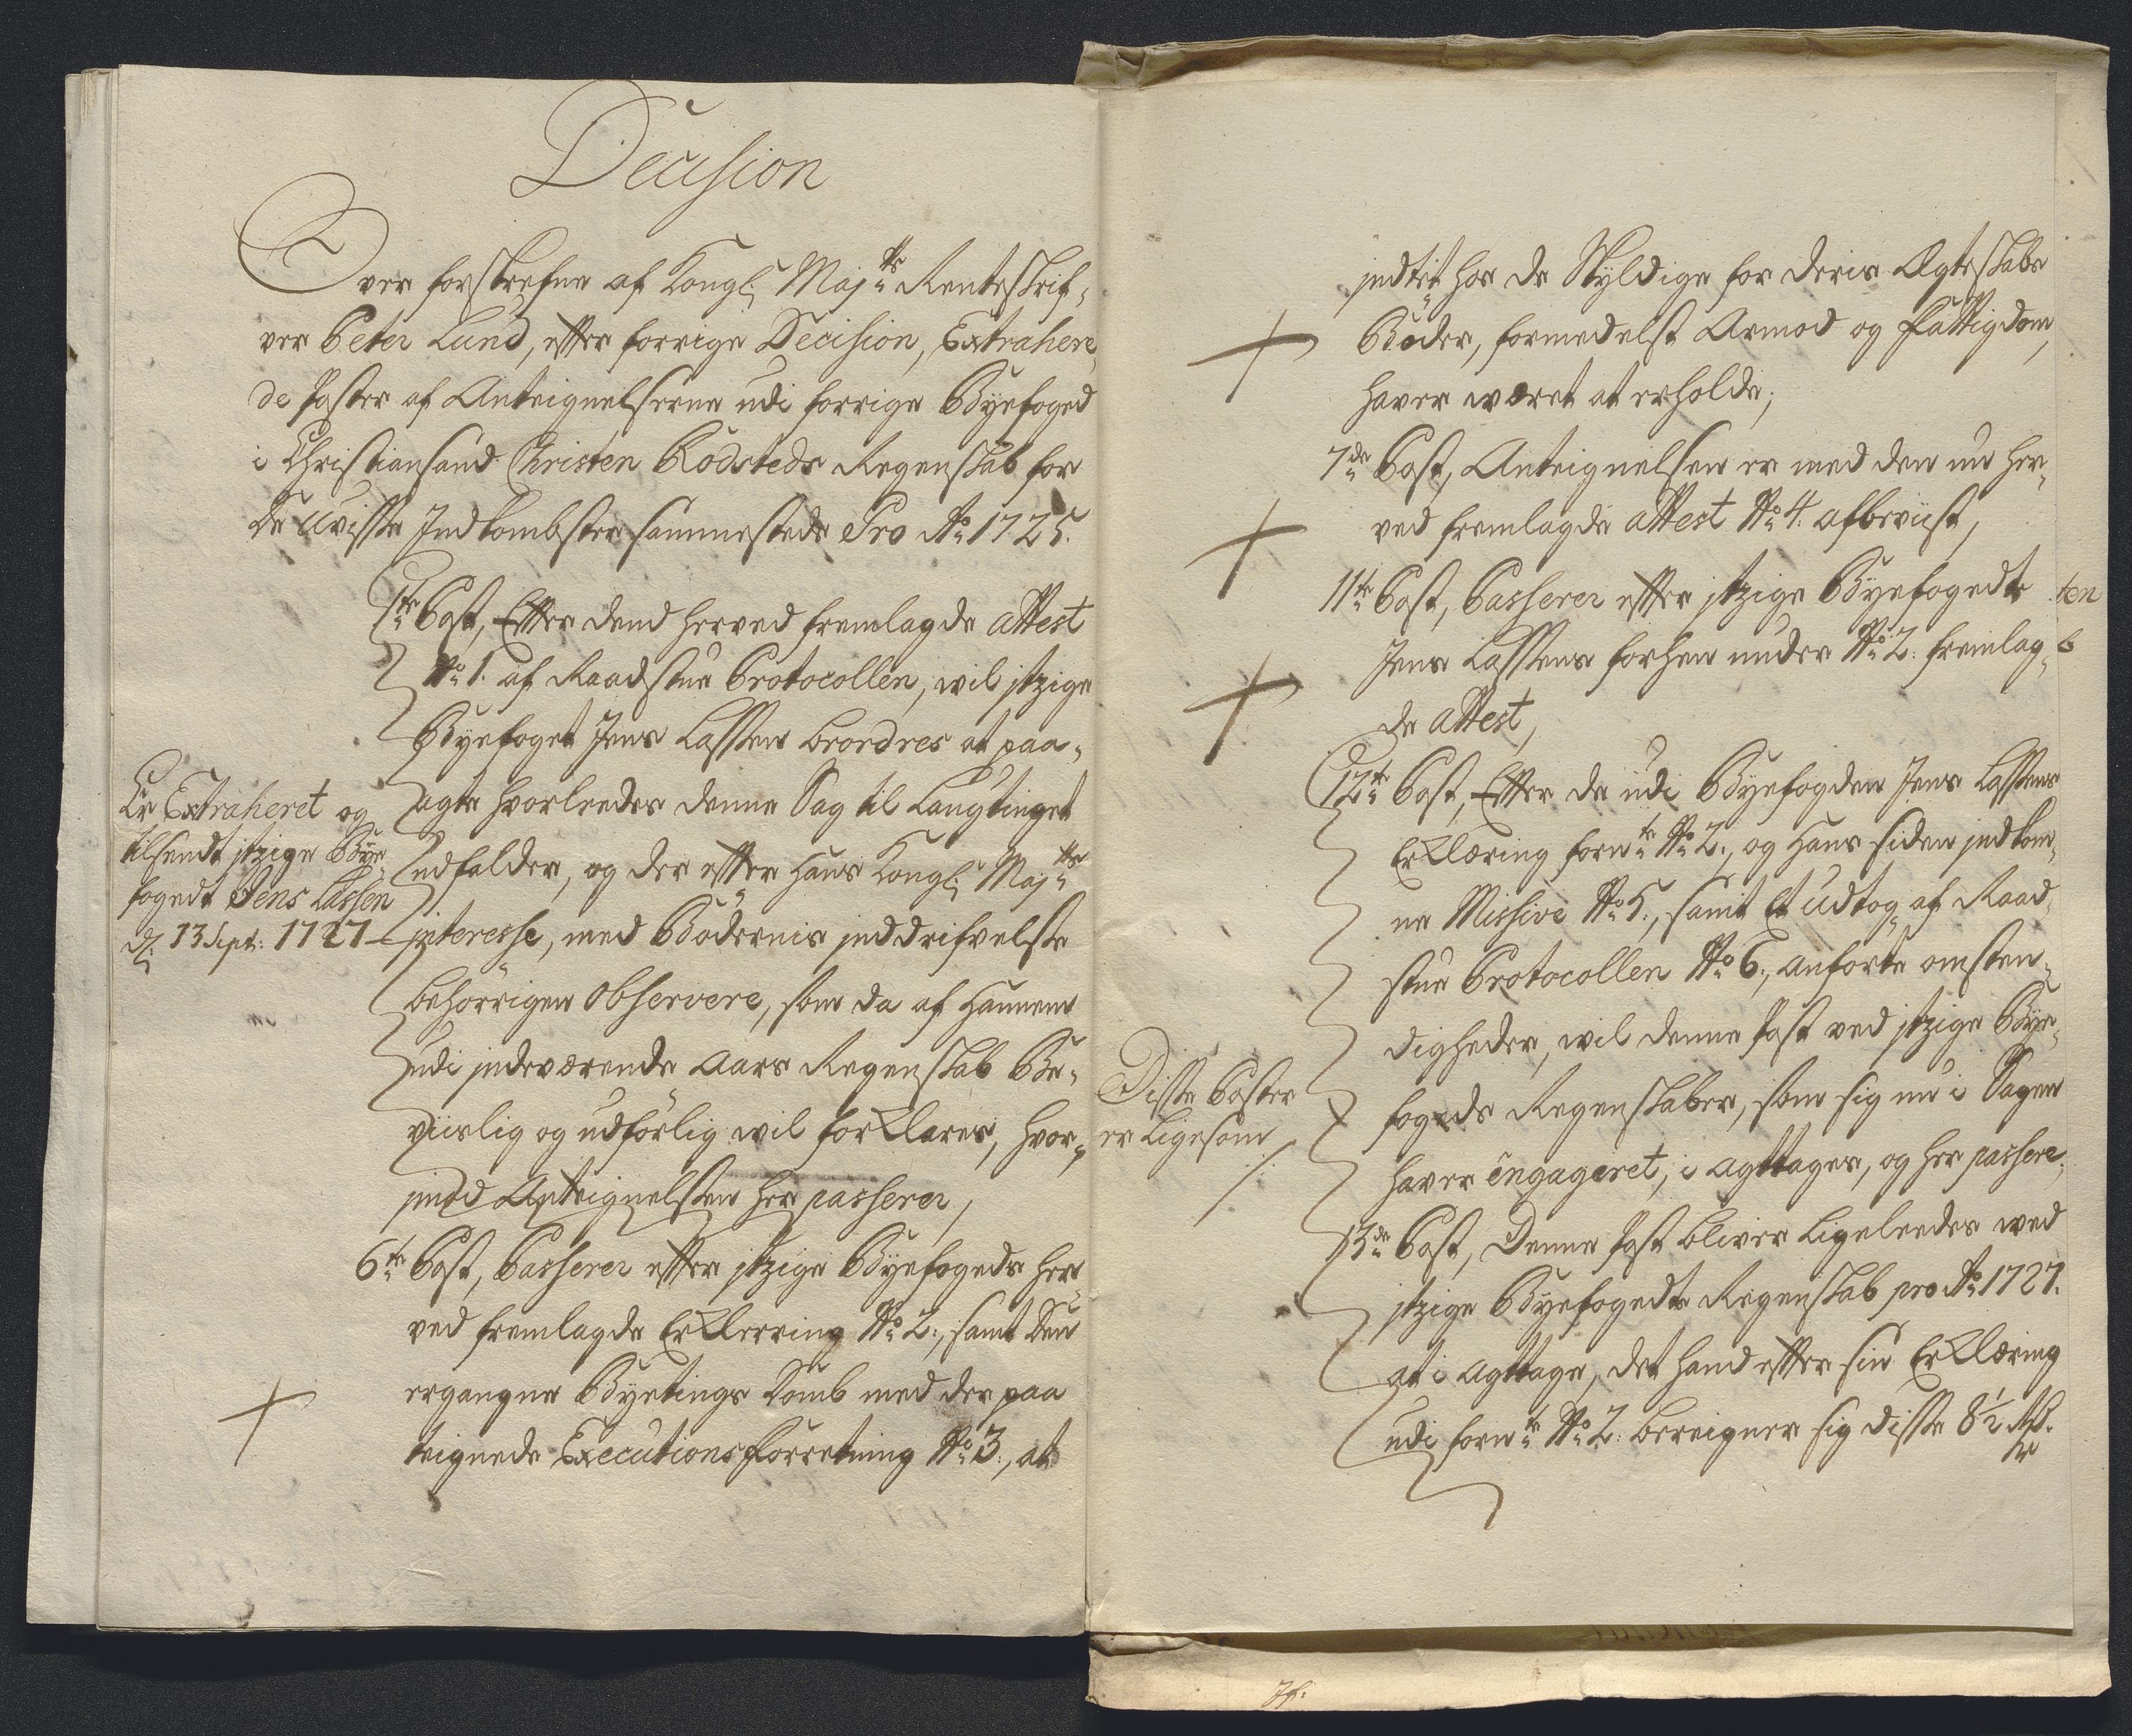 Decision
Over forskrefne af Kongl: Maj:ts Renteskrif-
ver Peter Lund, efter forrige Decision, Extrahere-
de Poster af Anteignelserne udi forrige Byefoged
i Christiansand Christen Rödsteds Regenskab for
de Uvisse Indkombster sammesteds Pro Ao 1725.
1te Post, Efter dend herved fremlagde attest
No 1. af Raadstue Protocollen, wil itzige
Byefoget Jens Lassen beordres at paa-
agte hvorleedes denne Sag til Langtinget
udfalder, og der efter Hans Kongl: Maj:ts
interesse, med Bödernis inddrifvelse
behörrigen Observere, som da af Hannem
udi indeværende Aars Regenskab Be-
viislig og udförlig wil forklares, hvor-
imod Anteignelsen her passerer,
Er Extraheret og
tilsendt itzige Bye-
foged Jens Lassen
d: 13 Sept: 1727
6te Post, Passerer efter itzige Byefogeds her-
ved fremlagde Erklerring No 2., samt Den
ergangne Byetings Domb med der paa
teignede Executions Forretning No 3., at
indtet hos de Skyldige for deris Ægteskabs
Böder, formedelst Armod og Fattigdom,
haver været at erholde;
7de Post, Anteignelsen er med den nu her-
ved fremlagde attest No 4. afbeviist,
11te Post, Passerer efter itzige Byefogedt
Jens Lassens forhen under No 2. fremlag-
de attest,
12te Post, Efter de udi Byefogden Jens Lassens
Erklæring fornte No 2., og Hans siden indkom-
ne Missive No 5., samt Et Udtog af Raad-
stue Protocollen No 6., anförte omsten-
digheder, wil denne Post ved itzige Bye-
fogeds Regenskaber, som sig nu i Sagen
haver engageret, i agttages, og her passere,
Disse Poster
er ligesom
13de Post, Denne Post bliver ligeleedes ved
itzige Byefogedt Regenskab pro Ao 1727.
at i agttage, det hand efter sin Erklæring
udi fornte No 2. bereigner sig disse 8½ Rd.
ten